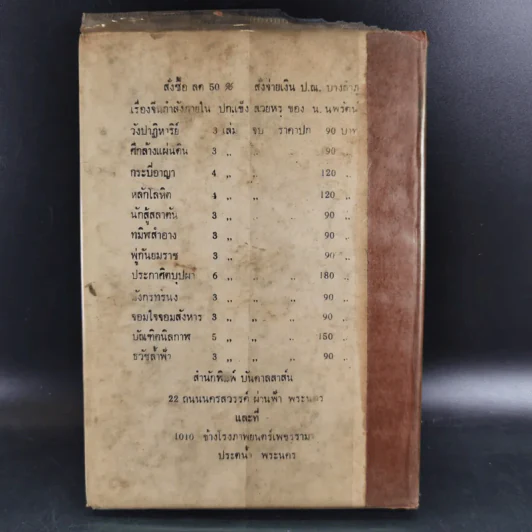 สั่งซื้อ ลด 50 % สั่งจ่ายเงิน ป.ณ. บางลำภู
เรื่องจีนกำลังภายใน ปกแข็ง สวยหรู ของ น. นพรัตน์
วังปาฏิหาริย์ 3 เล่ม จบ ราคาปก 90 บาท
ศึกล้างแผ่นดิน 3 ,, ,, 90 ,,
กระบี่อาญา 4 ,, ,, 120 ,,
หลักโลหิต 4 ,, ,, 120 ,,
นักสู้สลาตัน 3 ,, ,, 90 ,,
ทมิฬสำอาง 3 ,, ,, 90 ,,
พู่กันยมราช 3 ,, ,, 90 ,,
ประกาศิตบุปผา 6 ,, ,, ,, 180 ,,
มังกรทรนง 3 ,, ,, ,, 90 ,,
จอมใจจอมสังหาร 3 ,, ,, ,, 90 ,,
บัณฑิตนิลกาฬ 5 ,, ,, ,, 150 ,,
ธวัชล้ำฟ้า 3 ,, ,, ,, 90 ,,
สำนักพิมพ์ บันดาลสาส์น
22 ถนนนครสวรรค์ ผ่านฟ้า พระนคร
และที่
1010 ข้างโรงภาพยนตร์เพชรรามา
ประตูน้ำ พระนคร